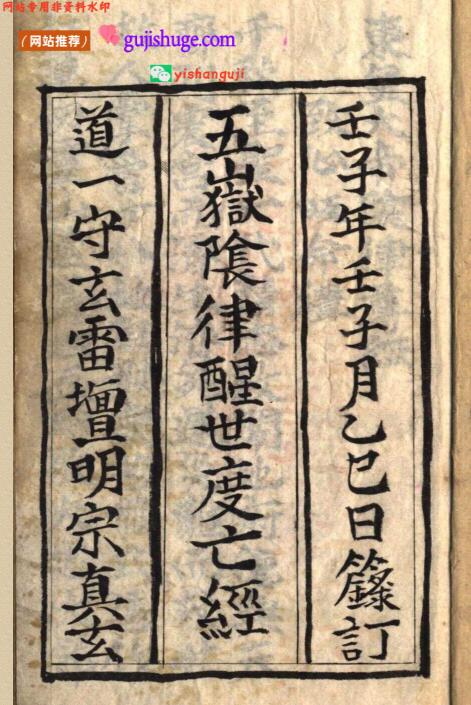 网站专用非资料水印
(网站推荐)
gujishuge.com
yishanguji
壬子年壬子月乙巳日籙訂
五嶽陰律醒世度亡經
道一守玄雷壇明宗真玄